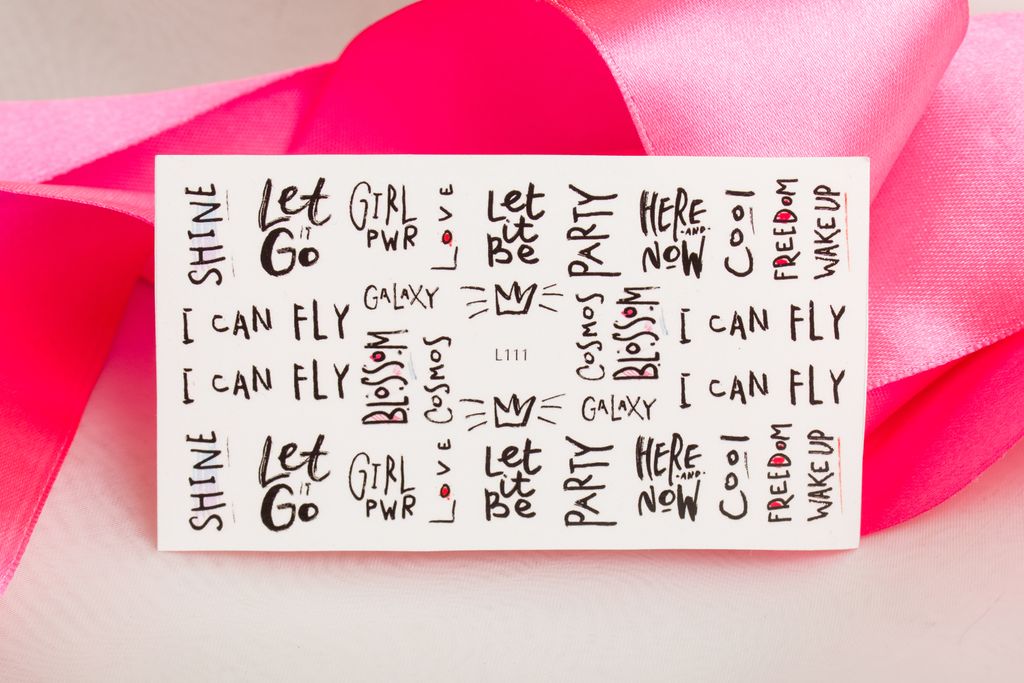 SHINE
Let
IT
Go
GIRL
PWR
LOVE
Let
it
Be
PARTY
HERE
AND
NOW
COOl
FREEDOM
WAKE UP
I CAN FLY
GALAXY
COSMOS
BLOSSOM
I CAN FLY
I CAN FLY
BLOSSOM
COSMOS
L111
GALAXY
I CAN FLY
SHINE
Let
IT
Go
GIRL
PWR
LOVE
Let
it
Be
PARTY
HERE
AND
NOW
COOl
FREEDOM
WAKE UP